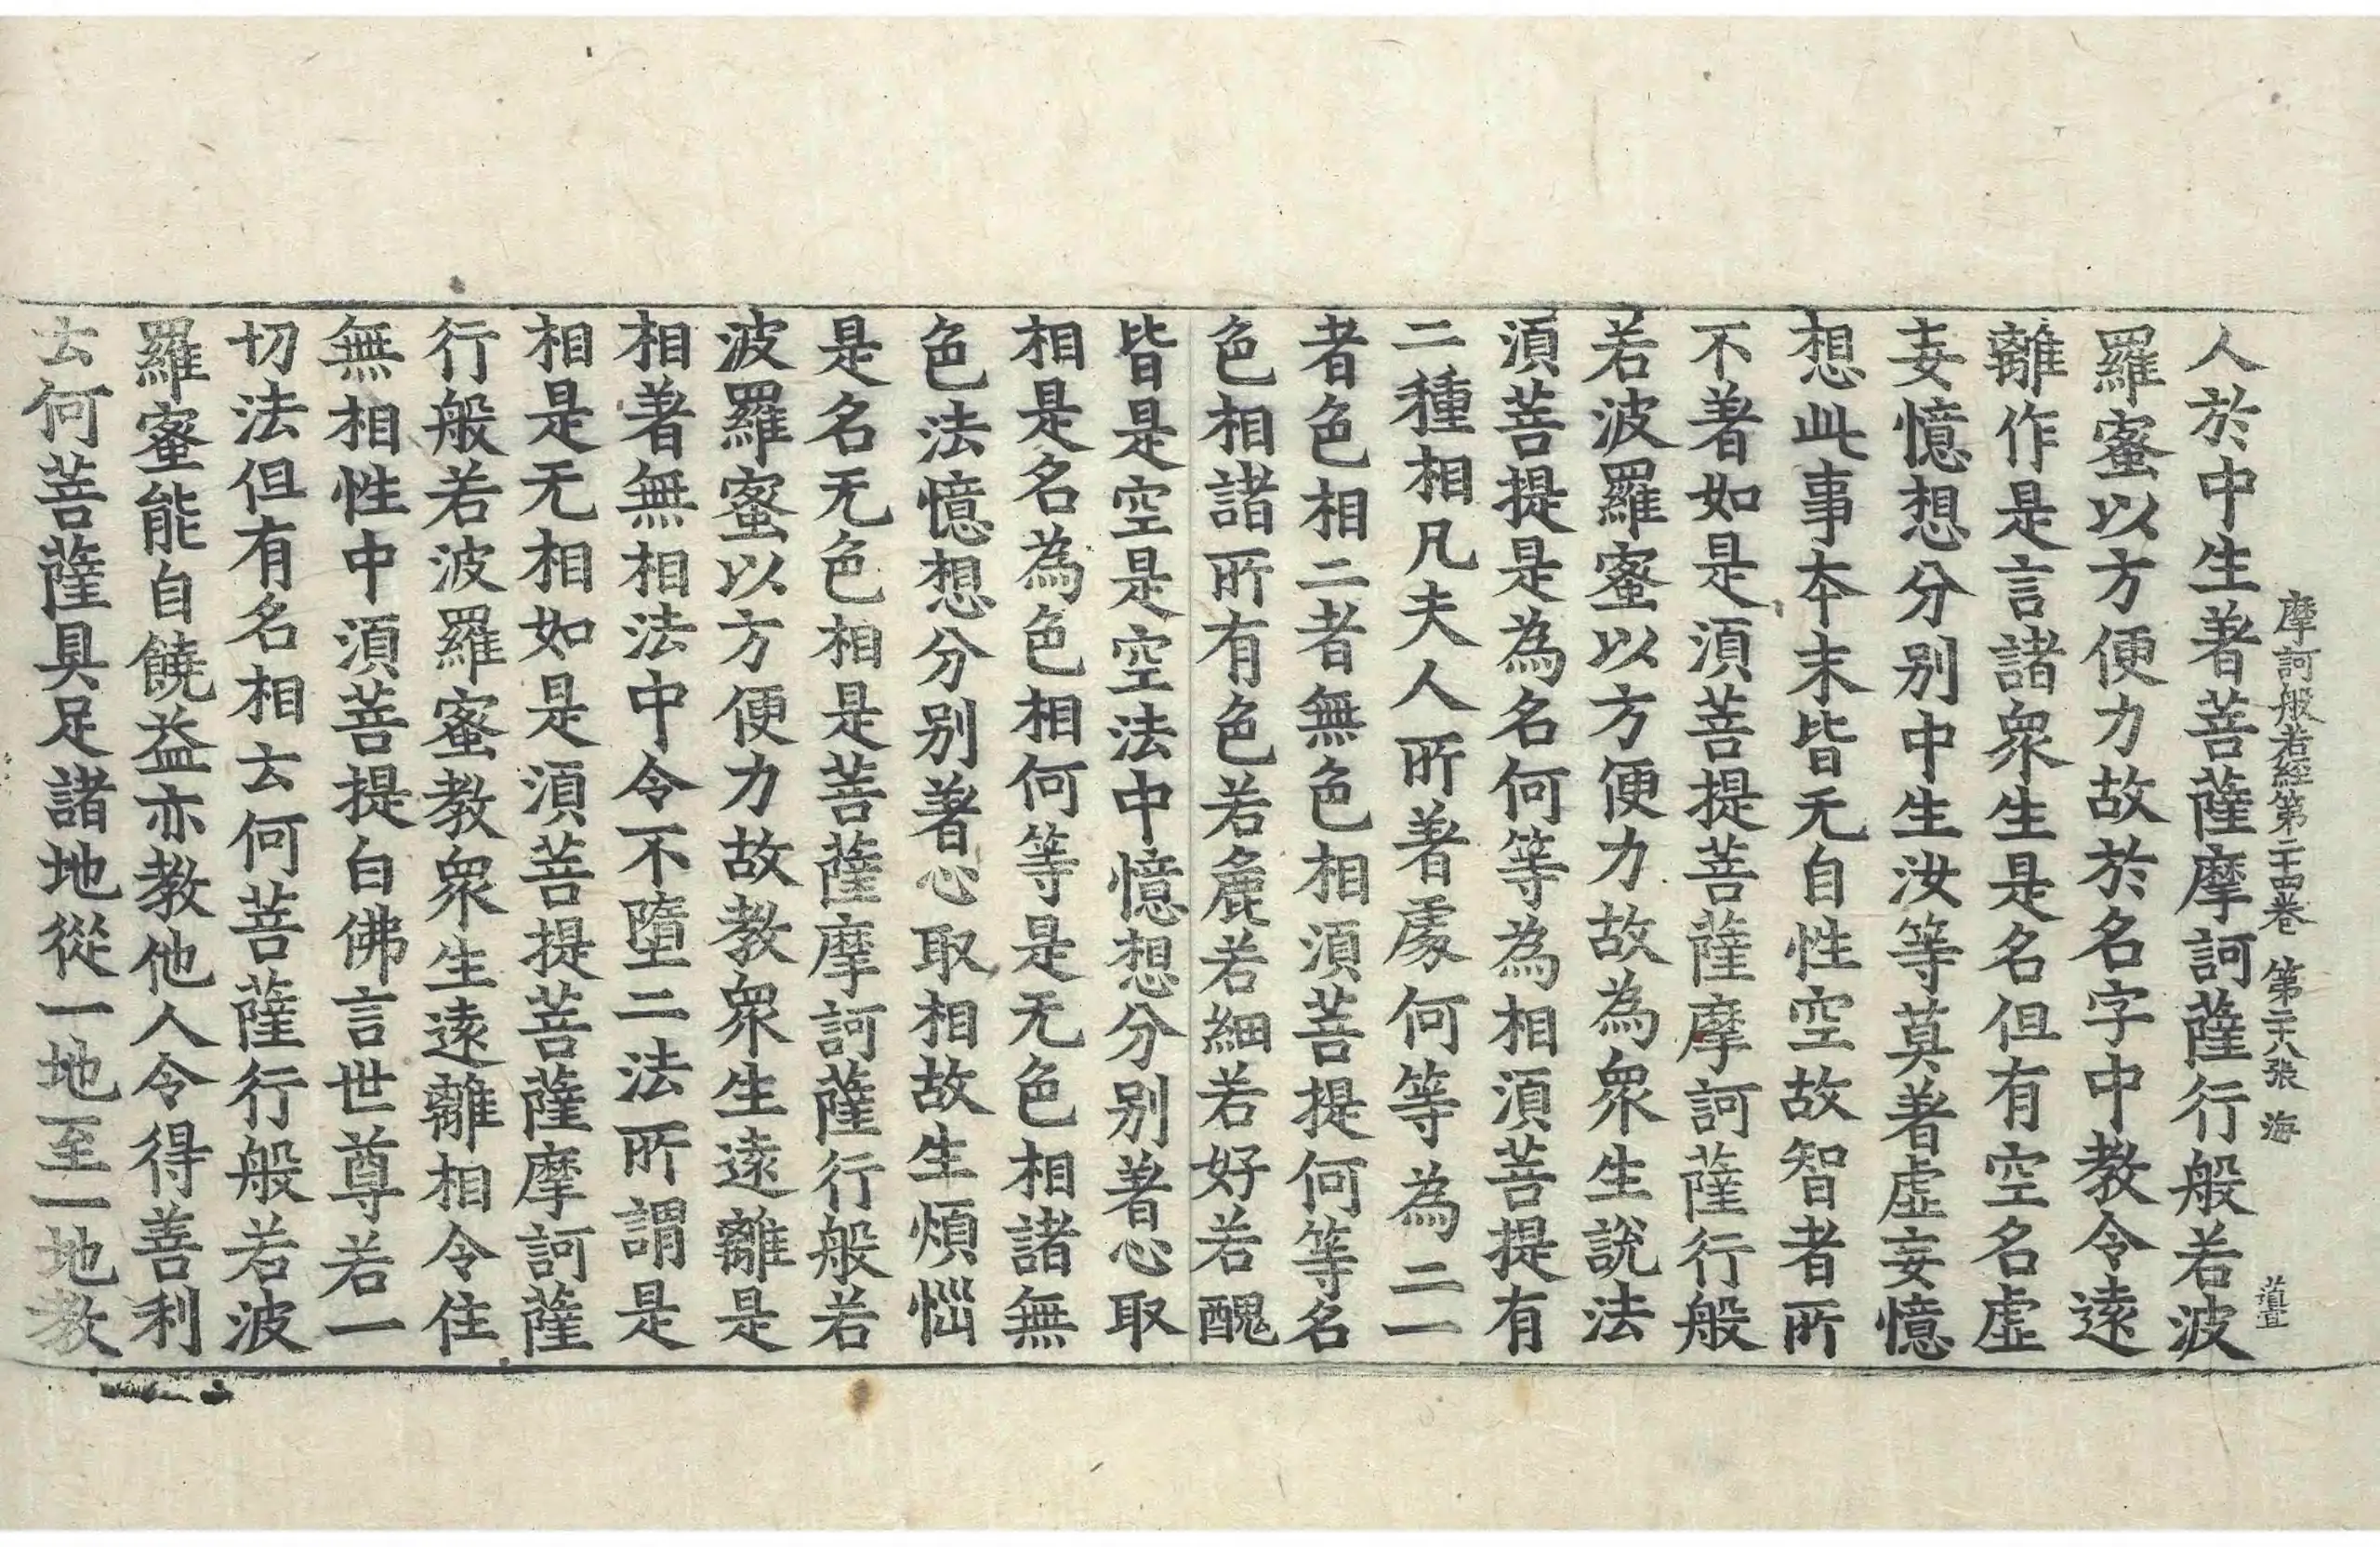 摩訶般若經第二十四卷 第二十八張 海
人於中生著菩薩摩訶薩行般若波
羅蜜以方便力故於名字中教令遠
離作是言諸眾生是名但有空名虛
妄憶想分別中生汝等莫著虛妄憶
想此事本末皆无自性空故智者所
不著如是須菩提菩薩摩訶薩行般
若波羅蜜以方便力故為眾生說法
須菩提是為名何等為相須菩提有
二種相凡夫人所著處何等為二一
者色相二者無色相須菩提何等名
色相諸所有色若麁若細若好若醜
皆是空是空法中憶想分別著心取
相是名為色相何等是无色相諸無
色法憶想分別著心取相故生煩惱
是名无色相是菩薩摩訶薩行般若
波羅蜜以方便力故教眾生遠離是
相著無相法中令不墮二法所謂是
相是无相如是須菩提菩薩摩訶薩
行般若波羅蜜教眾生遠離相令住
無相性中須菩提白佛言世尊若一
切法但有名相云何菩薩行般若波
羅蜜能自饒益亦教他人令得善利
云何菩薩具足諸地從一地至一地教